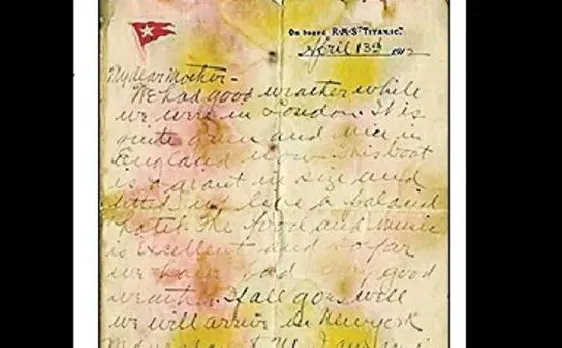 On board R·M·S "TITANIC."
April 13th 1912
My dear Mother -
We had good weather while
we were in London. It is
quite green and nice in
England now. This boat
is a giant in size and
fitted up like a
hotel. The food and music
is excellent and so far
we have had very good
weather. If all goes well
we will arrive in New York